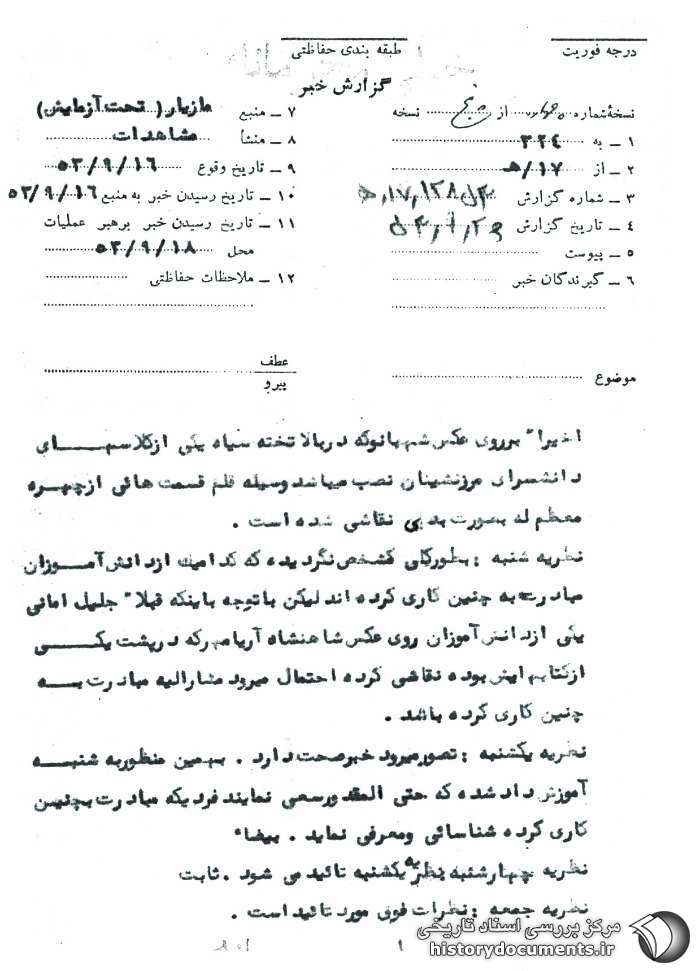 درجه فوریت
طبقه بندی حفاظتی
گزارش خبر
نسخهٔ شماره از نسخه
۱ ــ به ۳۲۴
۲ ــ از ۱۷/ه‍
۳ ــ شماره گزارش
۴ ــ تاریخ گزارش
۵ ــ پیوست
۶ ــ گیرندگان خبر
۷ ــ منبع مازیار ( تحت آزمایش )
۸ ــ منشأ مشاهدات
۹ ــ تاریخ وقوع ۵۳/۹/۱۶
۱۰ ــ تاریخ رسیدن خبر به منبع ۵۳/۹/۱۶
۱۱ ــ تاریخ رسیدن خبر برهبر عملیات
محل ۵۳/۹/۱۸
۱۲ ــ ملاحظات حفاظتی
موضوع
عطف
پیرو
اخیرا" برروی عکس شهبانوکه دربالا تخته سیاه یکی ازکلاسهـــای
دانشسرای مرزنشینان نصب میباشد وسیله قلم قسمت هائی ازچهـره
معظم له بصورت بدیی نقاشی شده است .
نظریه شنبه : بطورکلی مشخص نگردیده که کدامیك ازدانش آمــوزان
مبادرت به چنین کاری کرده اند لیکن باتوجه باینکه قبلا" جلیل امانی
یکی ازدانش آموزان روی عکس شاهنشاه آریامهرکه درپشت یکـــی
ازکتابهایش بوده نقاشی کرده احتمال میرود مشارالیه مبادرت بـــه
چنین کاری کرده باشد .
نظریه یکشنبه : تصورمیرود خبرصحت دارد . بهمین منظوربه شنبـــه
آموزش داد شده که حتی المقدورسعی نمایند فردیکه مبادرت بچنیـن
کاری کرده شناسائی ومعرفی نماید . بیضاء
نظریه چهارشنبه نظریه یکشنبه تائید می شود . ثابت
نظریه جمعه : نظرات فوق مورد تائید است .
۱
مرکز بررسی اسناد تاریخی
historydocuments.ir